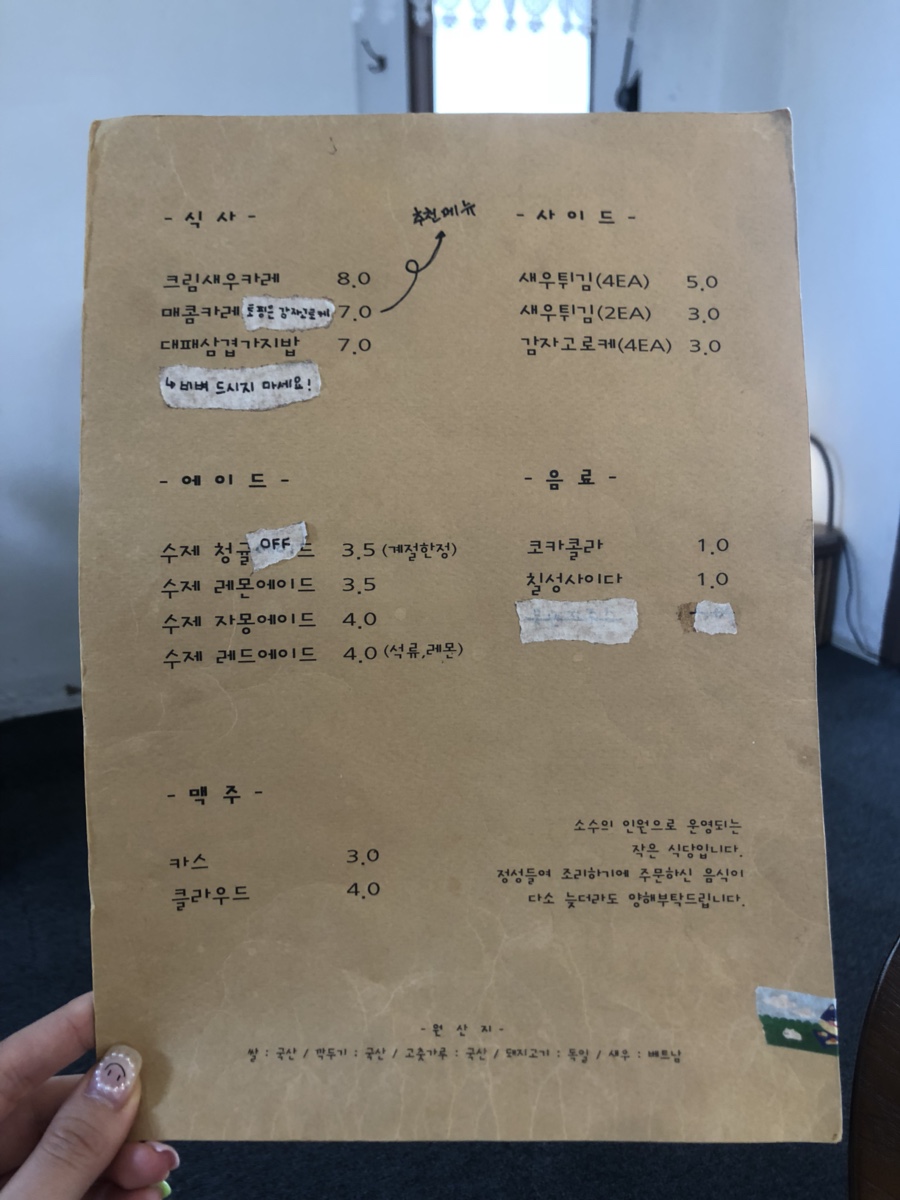 - 식 사 -
추천메뉴
크림새우카레 8.0
매콤카레 토핑은 감자고로케 7.0
대패삼겹가지밥 7.0
↳ 비벼 드시지 마세요!
- 사 이 드 -
새우튀김(4EA) 5.0
새우튀김(2EA) 3.0
감자고로케(4EA) 3.0
- 에 이 드 -
수제 청귤 OFF 드 3.5 (계절한정)
수제 레몬에이드 3.5
수제 자몽에이드 4.0
수제 레드에이드 4.0 (석류,레몬)
- 음 료 -
코카콜라 1.0
칠성사이다 1.0
- 맥 주 -
카스 3.0
클라우드 4.0
소수의 인원으로 운영되는
작은 식당입니다.
정성들여 조리하기에 주문하신 음식이
다소 늦더라도 양해부탁드립니다.
- 원 산 지 -
쌀 : 국산 / 깍두기 : 국산 / 고춧가루 : 국산 / 돼지고기 : 독일 / 새우 : 베트남